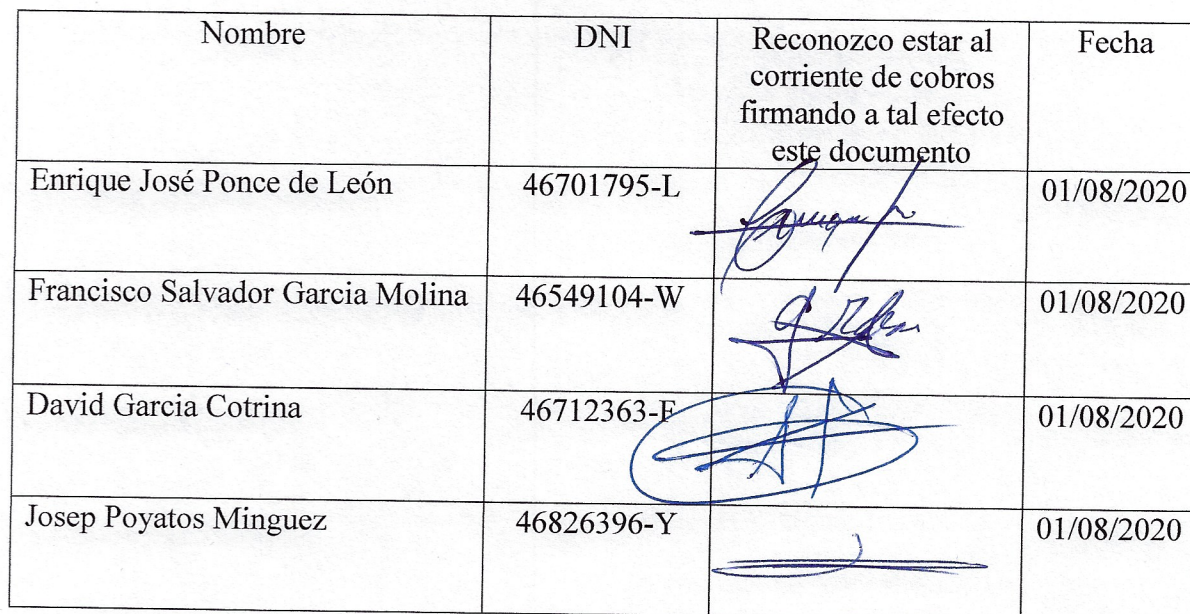 Nombre DNI Reconozco estar al Fecha
corriente de cobros
firmando a tal efecto
este documento
Enrique José Ponce de León 46701795-L 01/08/2020
Francisco Salvador Garcia Molina 46549104-W 01/08/2020
David Garcia Cotrina 46712363-F 01/08/2020
Josep Poyatos Minguez 46826396-Y 01/08/2020